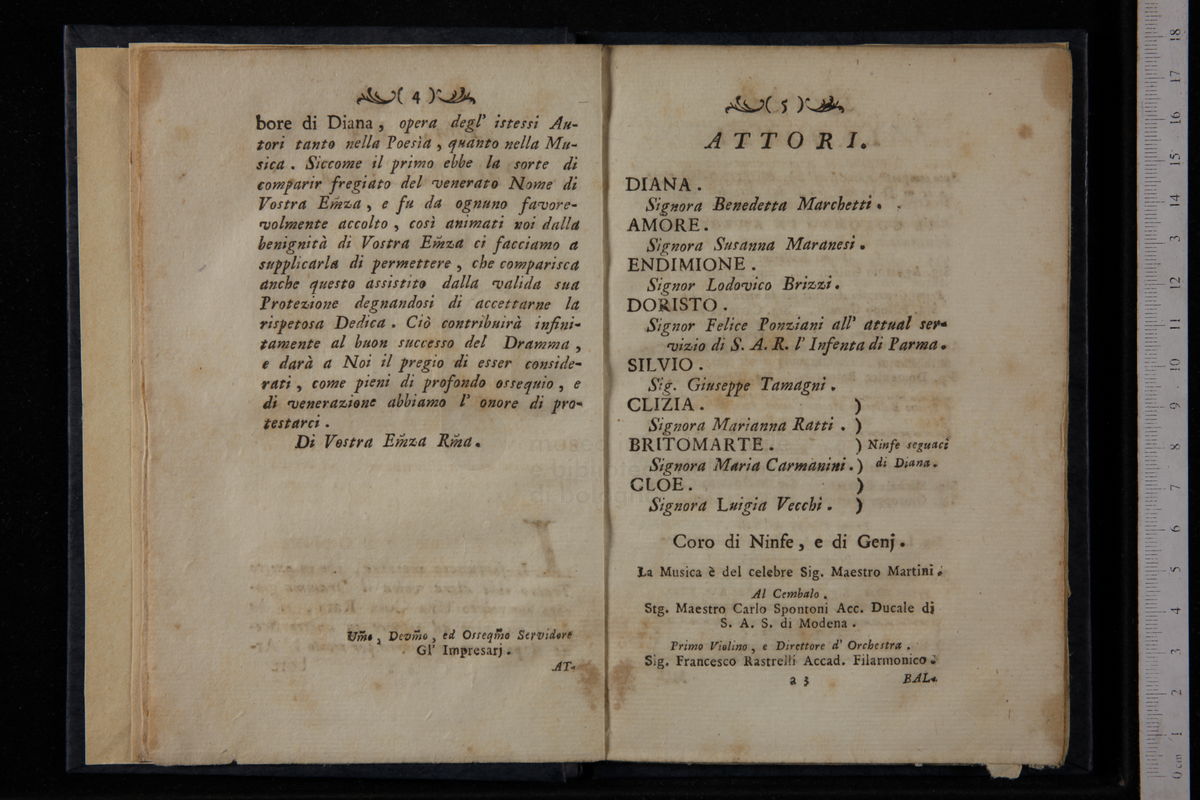 ( 4 )
bore di Diana, opera degl' istessi Au-
tori tanto nella Poesia, quanto nella Mu-
sica. Siccome il primo ebbe la sorte di
comparir fregiato del venerato Nome di
Vostra Em̃za, e fu da ognuno favore-
volmente accolto, così animati noi dalla
benignità di Vostra Em̃za ci facciamo a
supplicarla di permettere, che comparisca
anche questo assistito dalla valida sua
Protezione degnandosi di accettarne la
rispetosa Dedica. Ciò contribuirà infini-
tamente al buon successo del Dramma,
e darà a Noi il pregio di esser conside-
rati, come pieni di profondo ossequio, e
di venerazione abbiamo l' onore di pro-
testarci.
Di Vostra Em̃za Rm̃a.
Um̃o, Devm̃o, ed Osseqm̃o Servidore
Gl' Impresarj.
AT-
( 5 )
ATTORI.
DIANA.
Signora Benedetta Marchetti.
AMORE.
Signora Susanna Maranesi.
ENDIMIONE.
Signor Lodovico Brizzi.
DORISTO.
Signor Felice Ponziani all' attual ser-
vizio di S. A. R. l' Infenta di Parma.
SILVIO.
Sig. Giuseppe Tamagni.
CLIZIA. )
Signora Marianna Ratti. )
BRITOMARTE. ) Ninfe seguaci
Signora Maria Carmanini. ) di Diana.
CLOE. )
Signora Luigia Vecchi. )
Coro di Ninfe, e di Genj.
La Musica è del celebre Sig. Maestro Martini.
Al Cembalo.
Stg. Maestro Carlo Spontoni Acc. Ducale di
S. A. S. di Modena.
Primo Violino, e Direttore d' Orchestra.
Sig. Francesco Rastrelli Accad. Filarmonico.
a 3 BAL-
0 cm 1 2 3 4 5 6 7 8 9 10 11 12 13 14 15 16 17 18